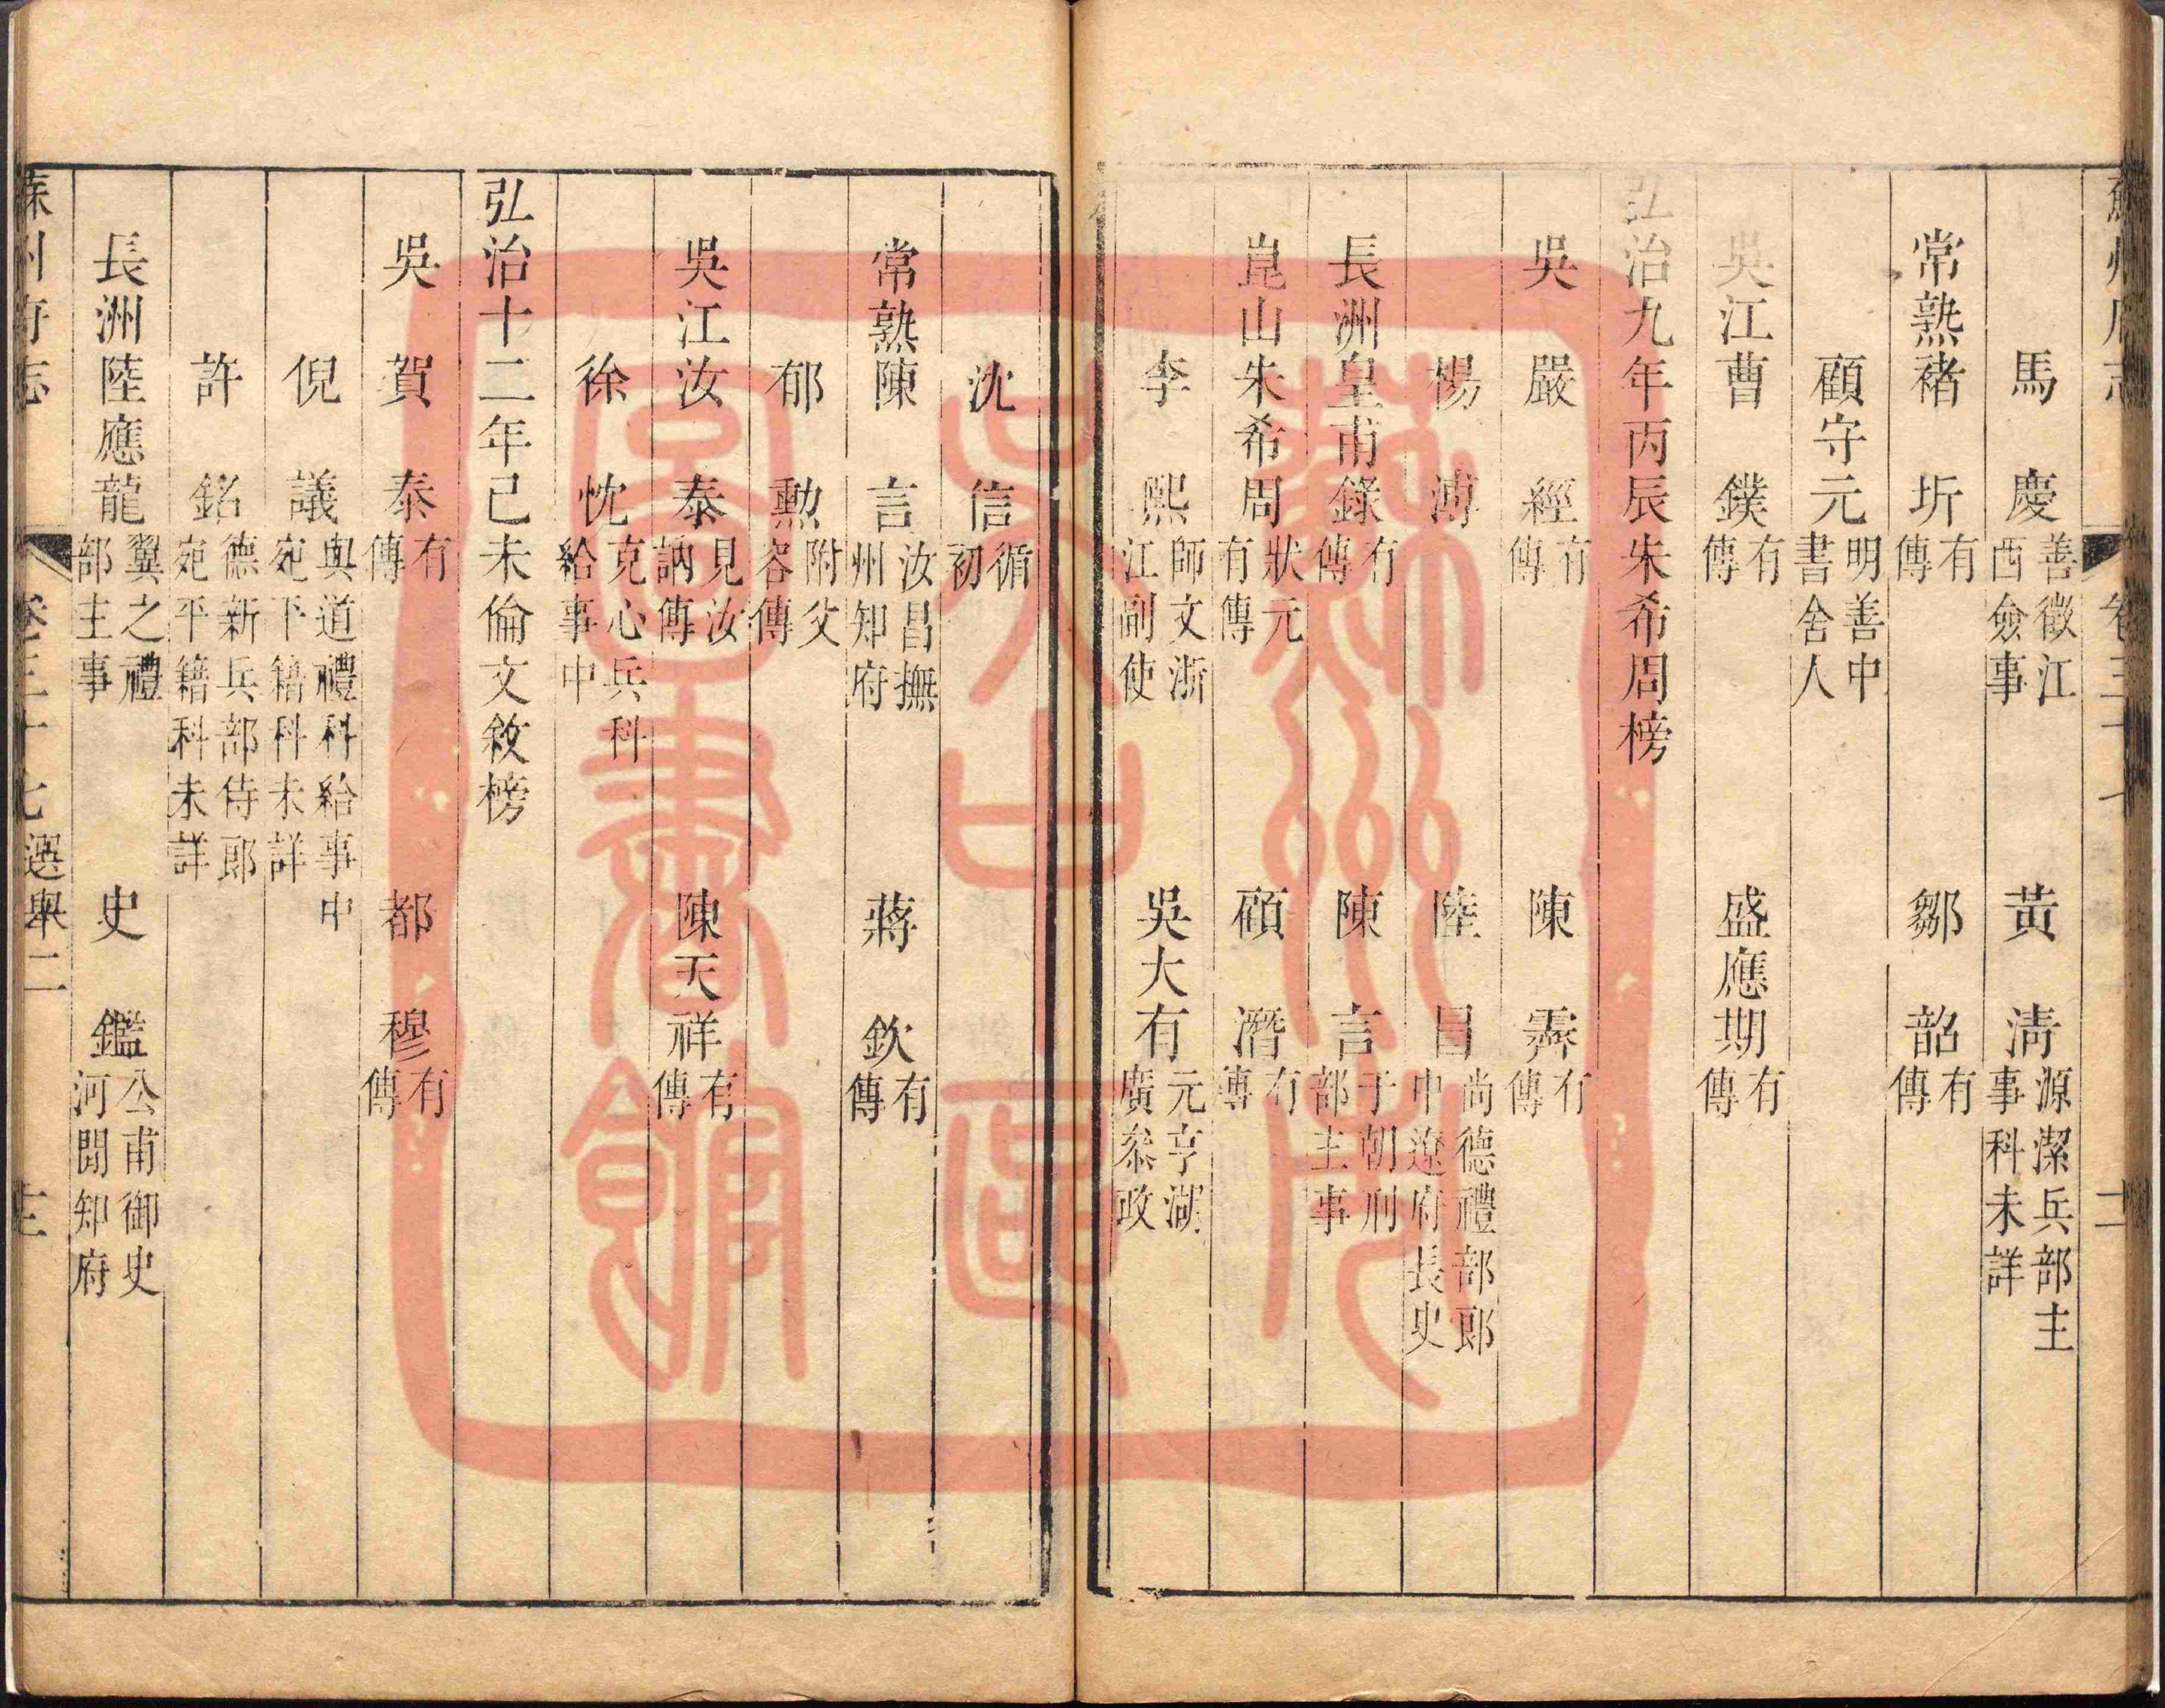 馬慶善徵江西僉事　黃清源潔兵部主事科未詳
常熟褚圻有傳　鄒韶有傳
顧守元明善中書舍人
吳江曹鏷有傳　盛應期有傳
弘治九年丙辰朱希周榜
吳嚴經有傳　陳霽有傳
楊溥　陸昌尚德禮部郎中遼府長史
長洲皇甫錄有傳　陳言于朝刑部主事
崑山朱希周狀元有傳　顧潛有傳
李熙師文浙江副使　吳大有元亨湖廣叅政
沈信循初
常熟陳言汝昌撫州知府　蔣欽有傳
郁勲附父容傳
吳江汝泰見汝訥傳　陳天祥有傳
徐忱克心兵科給事中
弘治十二年己未倫文敘榜
吳賀泰有傳　都穆有傳
倪議與道禮科給事中宛平籍科未詳
許銘德新兵部侍郎宛平籍科未詳
長洲陸應龍翼之禮部主事　史鑑公甫御史河間知府
蘇州府志　卷三十七選舉二　十三